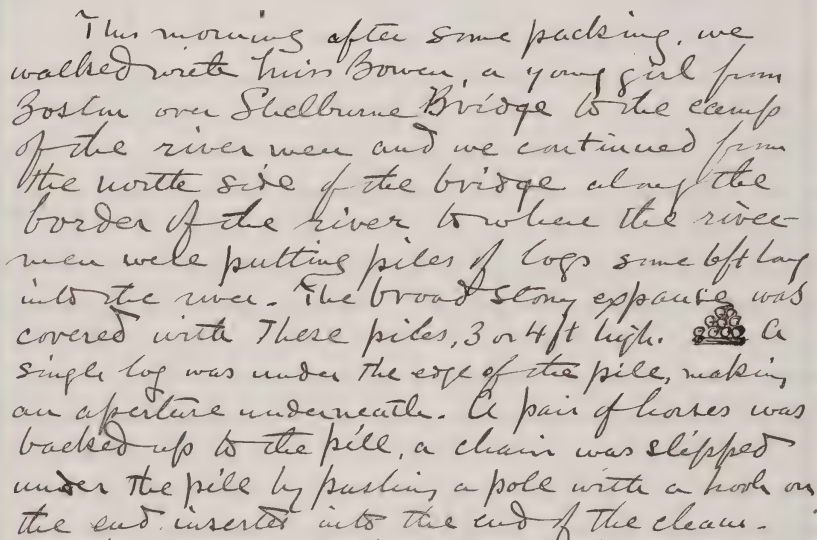 This morning after some packing, we
walked with Miss Bowen, a young girl from
Boston over Shelburne Bridge to the camp
of the river men and we continued from
the north side of the bridge along the
border of the river to where the river
men were putting piles of logs some 6ft long
into the river. The broad stony expanse was
covered with these piles, 3 or 4 ft high. A
single log was under the edge of the pile, making
an aperture underneath. A pair of horses was
backed up to the pile, a chain was slipped
under the pile by pushing a pole with a hook on
the end inserted into the end of the chain.